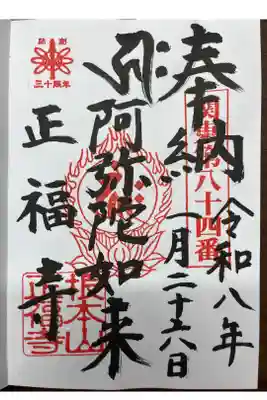 奉納
関東第八十四番
令和八年
一月二十六日
阿弥陀如来
開創
三十周年
正福寺
根本山
正福寺